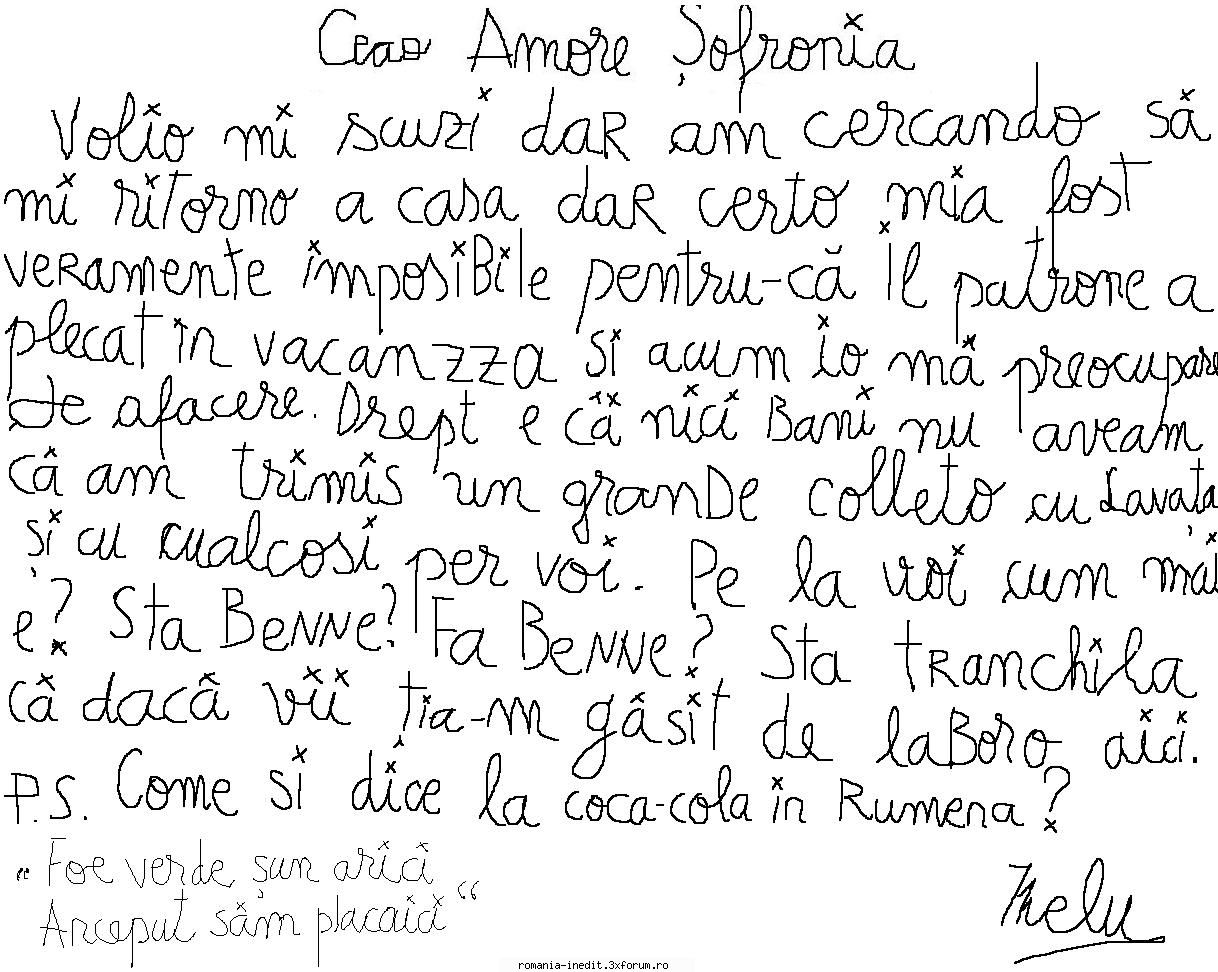 Ceao Amore Șofronia
Volio mi scuzi daR am cercando să
mi ritorno a casa daR certo mia fost
veRamente imposiBile pentru-că il patrone a
plecat in vacanzza si acum io mă preocupare
de afacere. Drept e că nici Bani nu aveam
că am trimis un granDe colleto cu Lavata
și cu cualcosi per voi. Pe la voi cum mai
e? Sta BeNNe? Fa BeNNe? Sta tRanchila
că dacă vii ția-m găsit de laBoro aici.
P.S. Come si dice la coca-cola in Rumena?
"Foe verde șun arici
Anceput săm placaici"
Nelu
romania-inedit.3xforum.ro